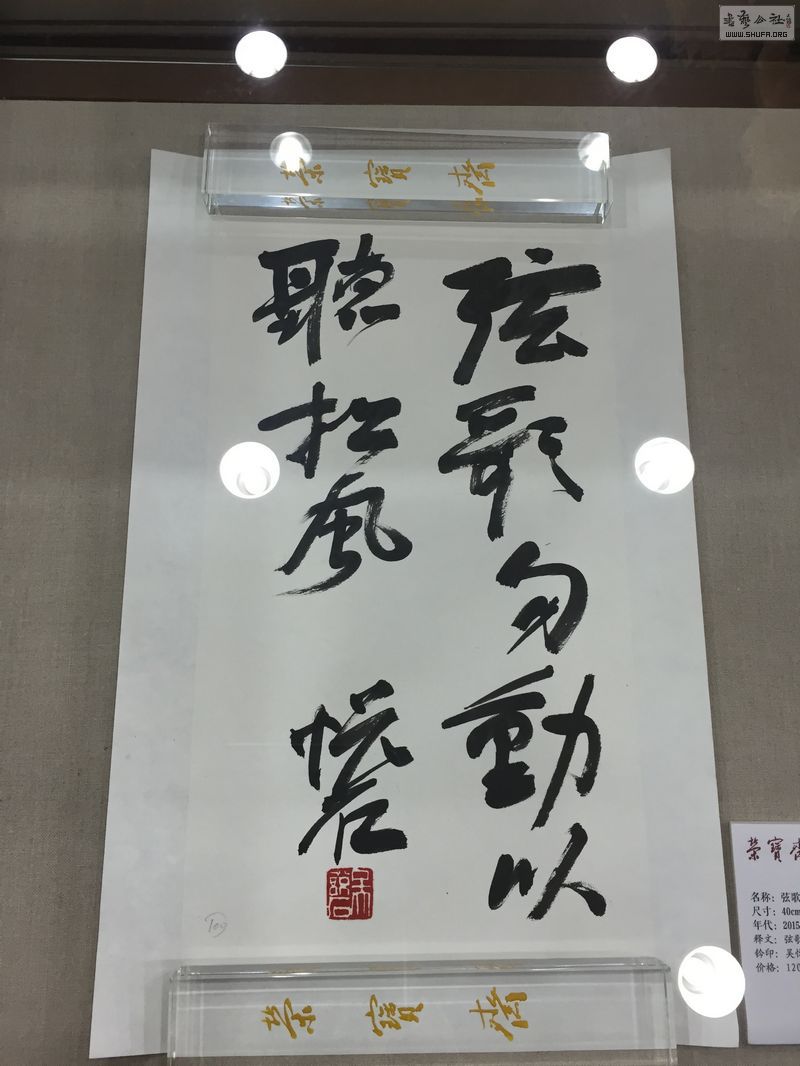 書藝公社
WWW.SHUFA.ORG
榮寶齋
弦歌勿動以
聽松風
悦石
榮寶齋
榮寶齋
名称：弦歌
尺寸：40cm
年代：2015
释文：弦歌
钤印：吴
价格：120